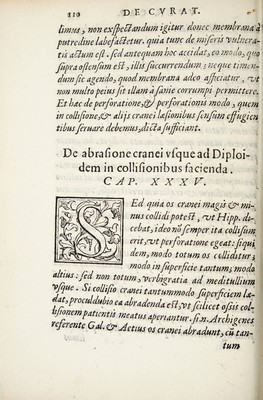 210 DE CVRAT.
timus, non expectandum igitur donec membrana à
putredine labefactetur. quia tunc de miseris vulnera-
tis actum est. sed antequam hoc accidat, eo modo, quo
supra ostensum est, illis succurrendum; neque timen-
dum sic agendo, quod membrana adeo afficiatur, vt
non multo peius sit illam à sanie corrumpi permittere.
Et hæc de perforatione, & perforationis modo, quem
in collisione, & alijs cranei læsionibus sensum effugien
tibus seruare debemus, dicta sufficiant.
De abrasione cranei vsque ad Diploi-
dem in collisionibus facienda.
CAP. XXXV.
SEd quia os cranei magis & mi-
nus collidi potest, vt Hipp. di-
cebat, ideo nō semper ita collisum
erit, vt perforatione egeat: siqui
dem, modo totum os colliditur;
modo in superficie tantum; modo
altius: sed non totum, verbigratia ad meditullium
vsque. Si collisio cranei tantummodo superficiem læ-
dat, proculdubio ea abradenda est, vt scilicet ossis col-
lisionem patientis meatus aperiantur. s.n. Archigenes
referente Gal. & Aetius os cranei abradunt, cū tan-
tum